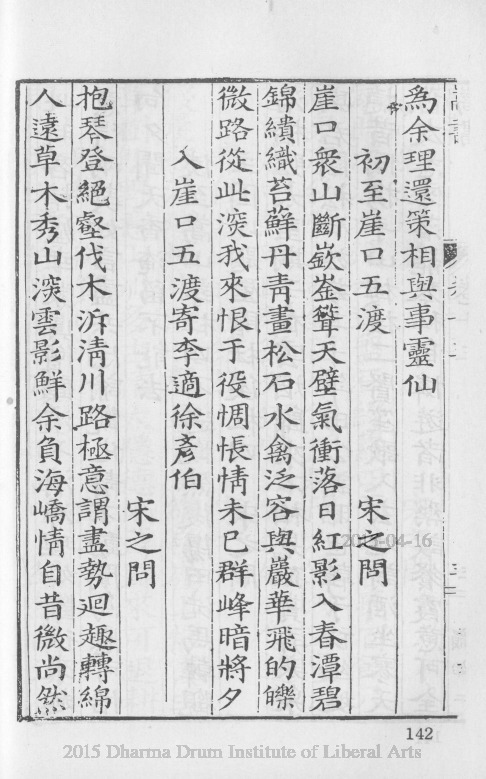 為余理還策相與事靈仙
初至崖口五渡 宋之問
崖口衆山斷嶔崟聳天壁氣衝落日紅影入春潭碧
錦繢織苔蘚丹靑畫松石水禽泛容與巖華飛的皪
微路從此深我來恨于役惆悵情未已群峰暗將夕
入崖口五渡寄李適徐彥伯
宋之問
抱琴登絕壑伐木泝淸川路極意謂盡勢迴趣轉綿
人遠草木秀山深雲影鮮余負海嶠情自昔微尚然
142
2015 Dharma Drum Institute of Liberal Arts